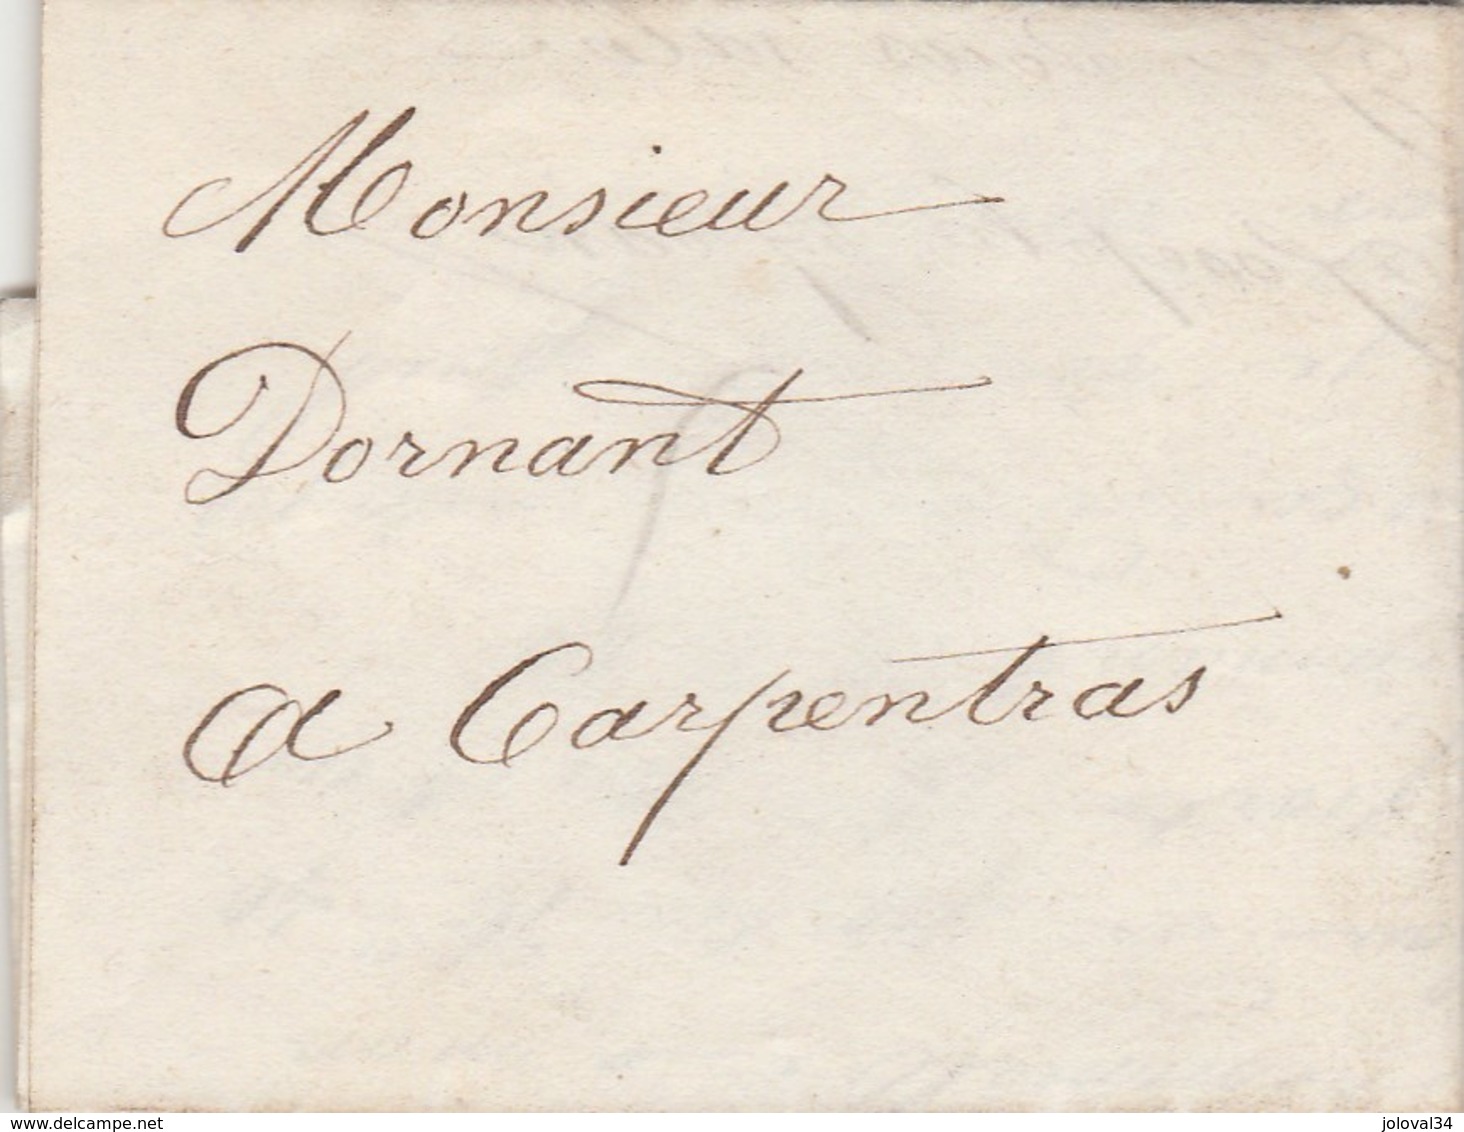 Monsieur
Dornant
a Carpentras
delcampe.net
joloval34